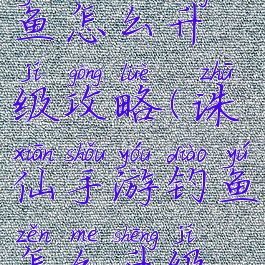 鱼怎么升
jí gōng lüè zhū
级攻略(诛
xiān shǒu yóu diào yú
仙手游钓鱼
zěn me shēng jí
怎么升级